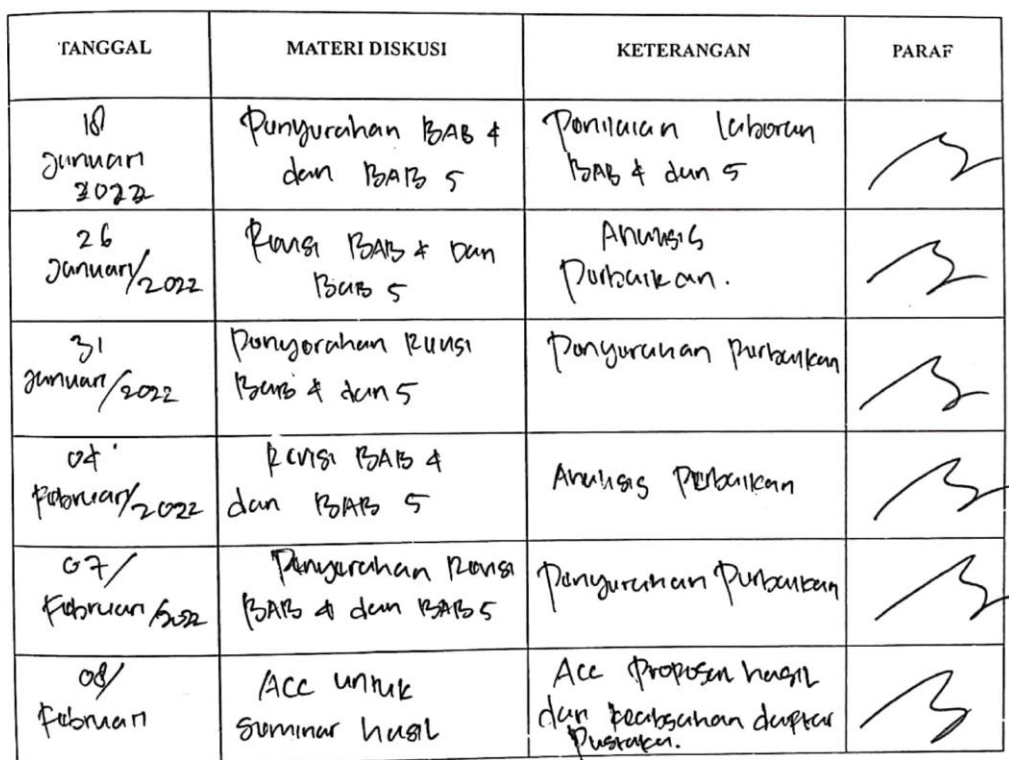 TANGGAL MATERI DISKUSI KETERANGAN PARAF
18 Januari 2022
Penyerahan BAB 4
dan BAB 5
Penilaian laporan
BAB 4 dan 5
26
Januari/2022
Revisi BAB 4 Dan
Bab 5
Analisis
Perbaikan.
31
Januari/2022
Penyerahan Revisi
Bab 4 dan 5
Penyerahan Perbaikan
04
Februari/2022
Revisi BAB 4
dan BAB 5
Analisis Perbaikan
07/
Februari/2022
Penyerahan Revisi
BAB 4 dan BAB 5
Penyerahan Perbaikan
08/
Februari
Acc untuk
seminar hasil
Acc Proposal hasil
dan keabsahan daftar
Pustaka.